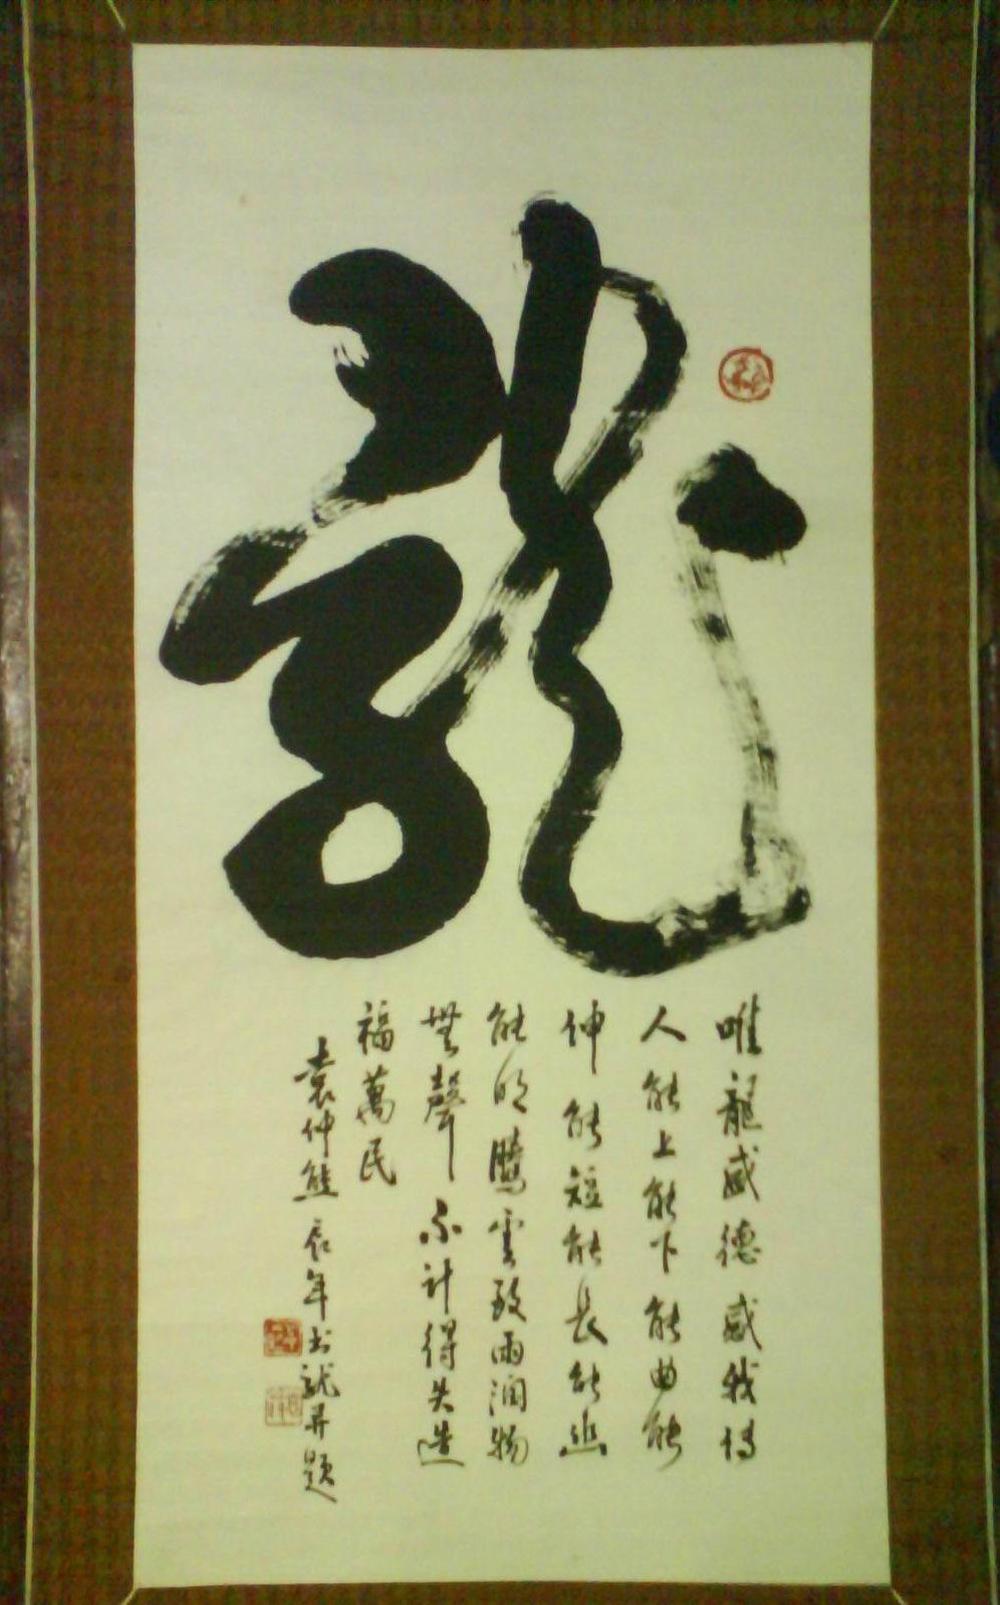 龍
唯龍盛德感我傳
人能上能下能曲能
伸能短能長能幽
能明騰雲致雨潤物
無聲不計得失造
福萬民
袁仲熊辰年書龍并題